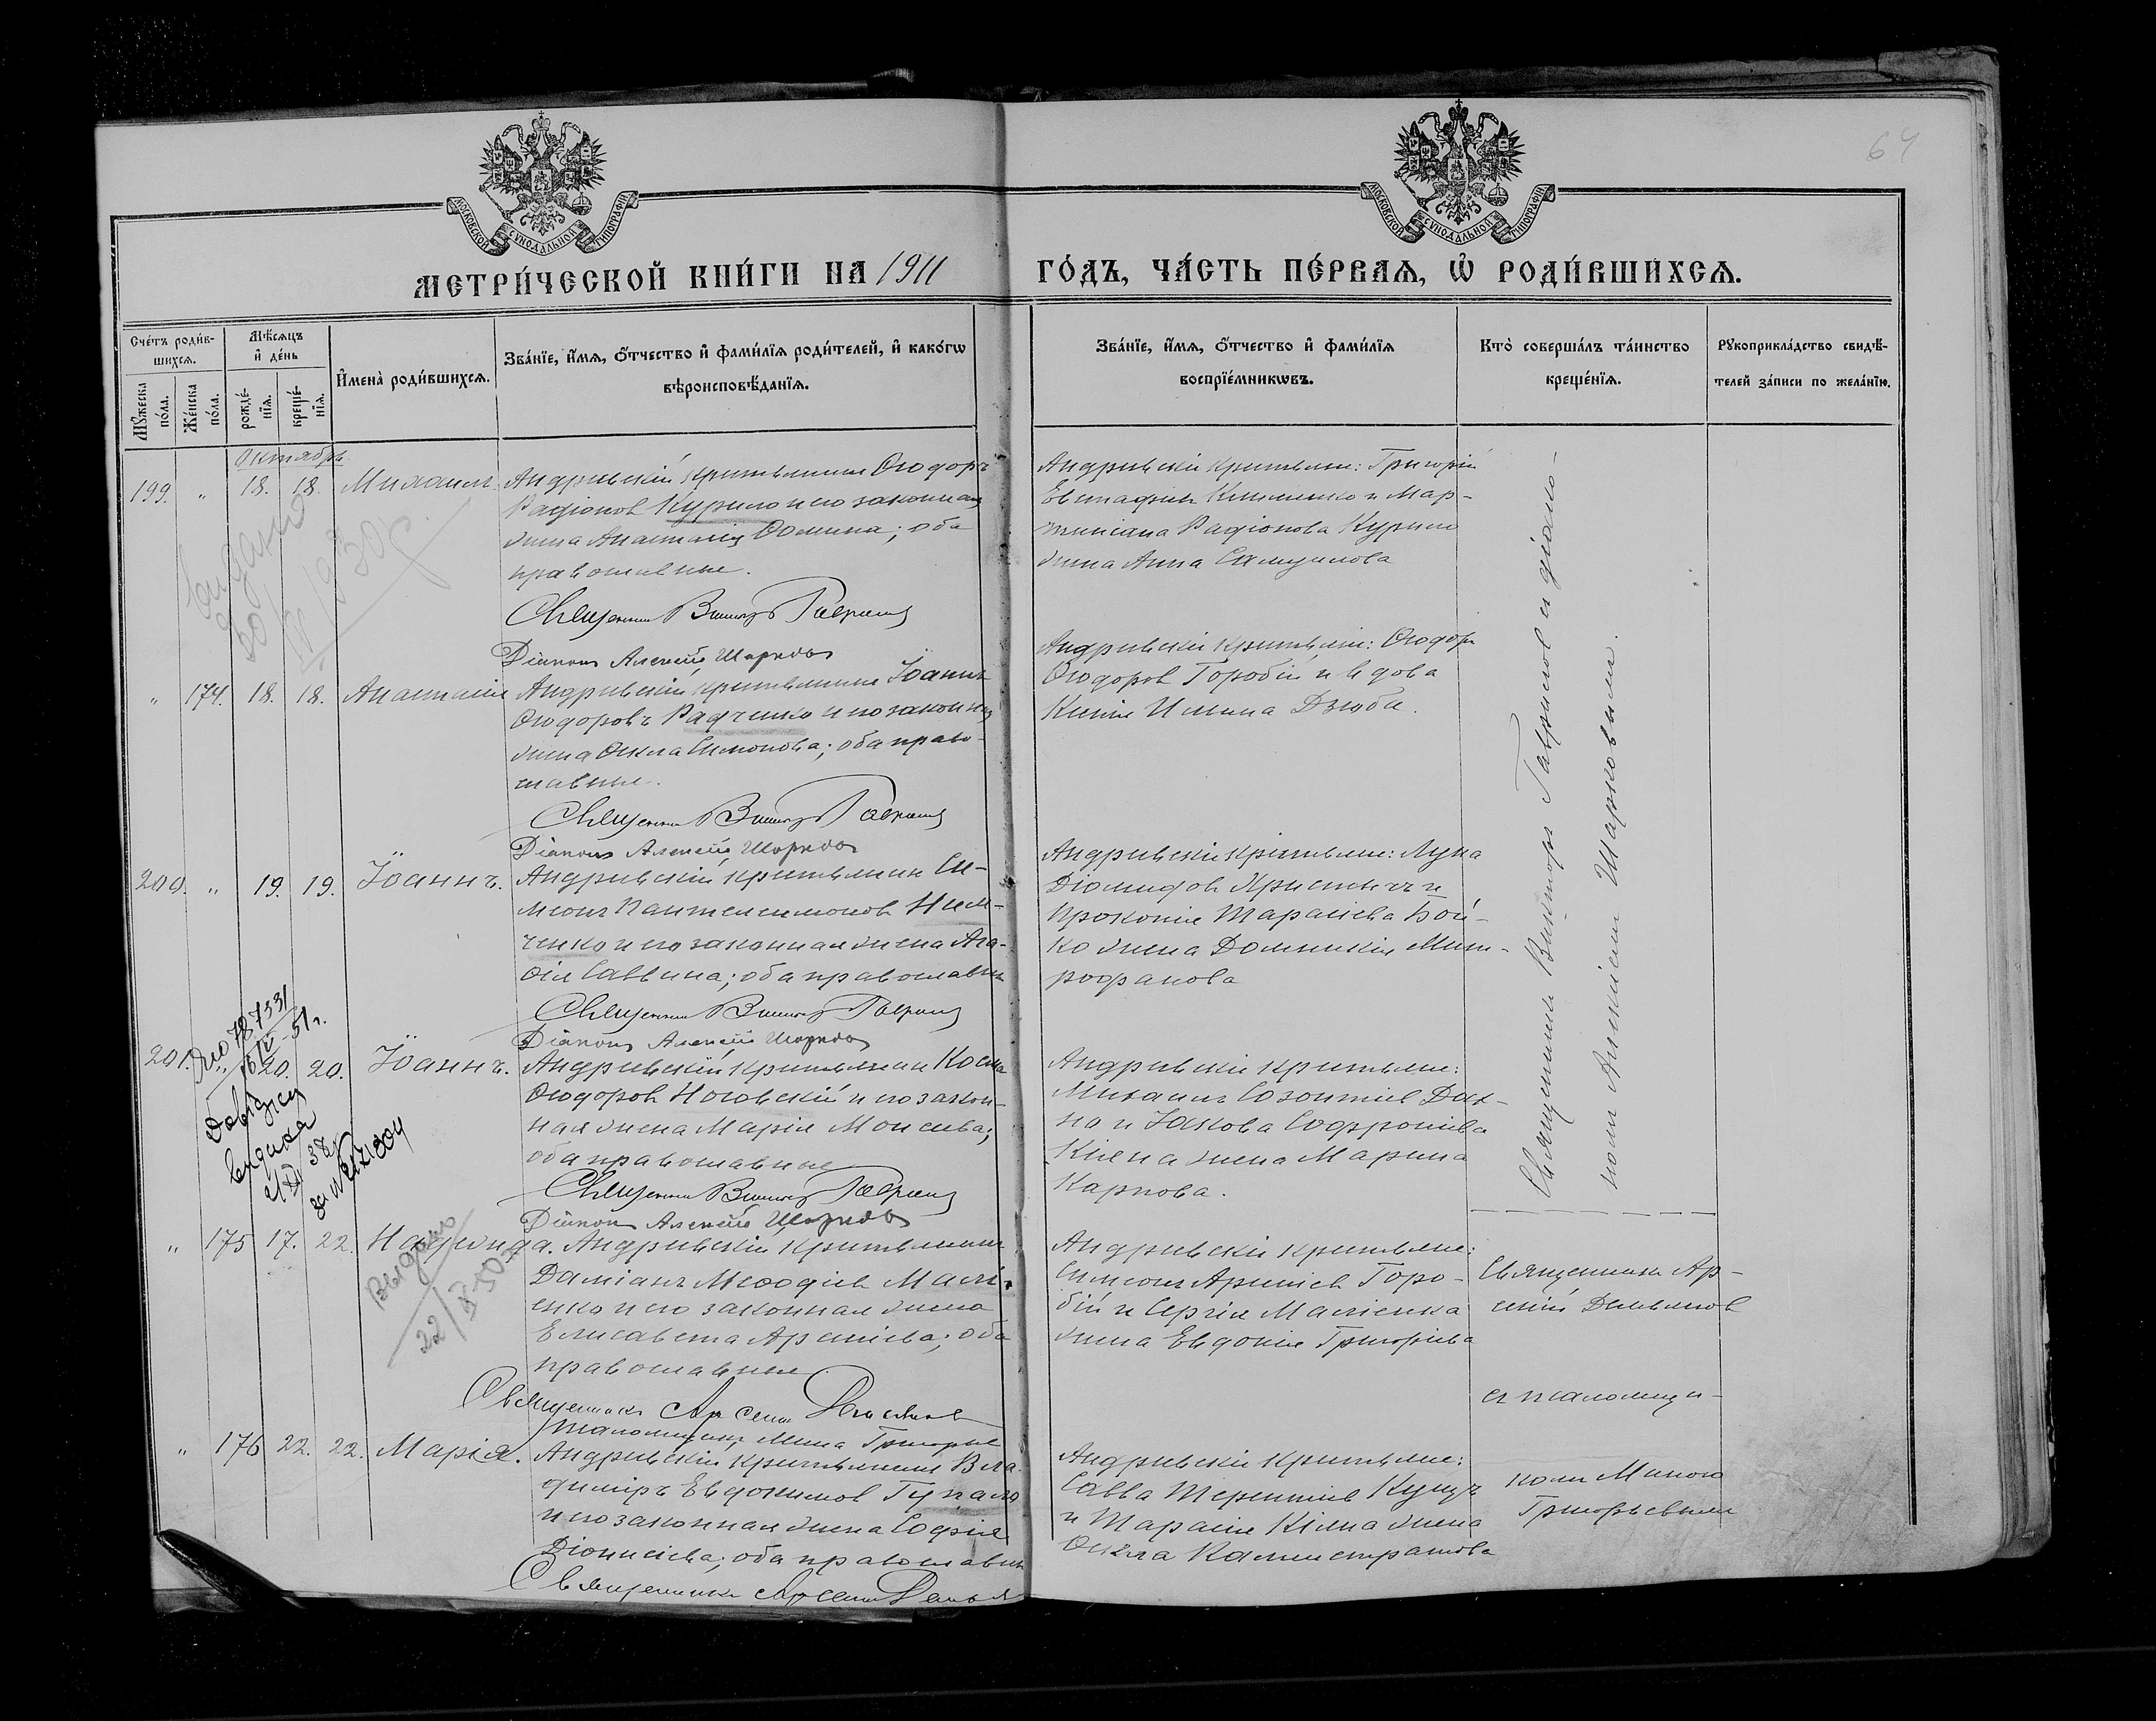 64
МОСКОВСКОЙ СѴНОДАЛЬНОЙ ТИПОГРАФІИ
МОСКОВСКОЙ СѴНОДАЛЬНОЙ ТИПОГРАФІИ
МЕТРИ́ЧЕСКОЙ КНИ́ГИ НА 1911 ГО́ДЪ, ЧА́СТЬ ПЕ́РВАЯ, Ѡ҆ РОДИ́ВШИХСЯ.
Сче́тъ роди́в-
шихся.
Мѣ́сяцъ
и҆ де́нь
Мꙋ́жеска
по́ла.
Же́нска
по́ла.
рожде́-
нїя.
креще́-
нїя.
И҆мена̀ роди́вшихся.
Зва́нїе, и҆́мя, ѻ҆́тчество и҆ фами́лїя роди́телей, и҆ како́гѡ
вѣроисповѣ́данїя.
Зва́нїе, и҆́мя, ѻ҆́тчество и҆ фами́лїя
воспрїе́мникѡвъ.
Кто̀ соверша́лъ та́инство
креще́нїя.
Рꙋкоприкла́дство свидѣ́-
телей за́писи по жела́нїю.
Октябрь
199. " 18. 18. Михаилъ.
Андреевскій крестьянинъ Ѳеодоръ
Родіоновъ Курило и его законная
жена Анастасія Ѳомина; оба
православные.
Священникъ Викторъ Гаврилов
Діаконъ Алексій Шарков
Андреевскіе крестьяне: Григорій
Евстафіевъ Клименко и Мар-
тиніана Родіонова Курило
жена Анна Самуилова
" 174. 18. 18. Анастасія
Андреевскій крестьянинъ Іоаннъ
Ѳеодоровъ Радченко и его законная
жена Ѳекла Симонова; оба право-
славные.
Священникъ Викторъ Гаврилов
Діаконъ Алексій Шарков
Андреевскіе крестьяне: Ѳеодоръ
Ѳеодоровъ Горобій и вдова
Ксенія Ильина Дзюба.
200. " 19. 19. Іоаннъ.
Андреевскій крестьянинъ Си-
меонъ Пантелеимоновъ Нем-
ченко и его законная жена Ага-
ѳія Саввина; оба православные
Священникъ Викторъ Гаврилов
Діаконъ Алексій Шарков
Андреевскіе крестьяне: Лука
Діомидовъ
Прокопія Тарасіева Бой-
ко жена Домникія Мит-
рофанова
201. " 20. 20. Іоаннъ.
Андреевскій крестьянинъ Косма
Ѳеодоровъ Носовскій и его закон-
ная жена Марія Моисеева;
оба православные
Священникъ Викторъ Гаврилов
Діаконъ Алексій Шарков
Андреевскіе крестьяне:
Михаилъ Созонтіевъ Дах-
но и Іакова Софроніева
жена Марина
Карпова.
Священникъ Викторъ Гаврилов съ діако-
номъ Алексіемъ Шарковымъ.
" 175 17. 22. Надежда.
Андреевскій крестьянинъ
Даміанъ Меѳодіевъ Маслі-
енко и его законная жена
Елисавета Арсеніева; оба
православные
Священникъ Арсеній Демьянов
Псаломщикъ Мина Григорьев
Андреевскіе крестьяне:
Симеонъ Арсеніевъ Горо-
бій и Сергія Масліенка
жена Евдокія Григоріева
Священникъ Ар-
сеній Демьянов
съ псаломщи-
комъ Миною
Григорьевымъ
" 176 22. 22. Марія.
Андреевскій крестьянинъ Вла-
диміръ Евдокимовъ Гупало
и его законная жена Софія
Діонисіева; оба православные
Священникъ Арсеній Демьян
Андреевскіе крестьяне:
Савва Терентіевъ Куцъ
и Тарасія жена
Ѳекла Каллистратова
Видано
30/IV 1930р.
787331
16 IV-51г.
Довідку
видана
Выдано
22/X 50г